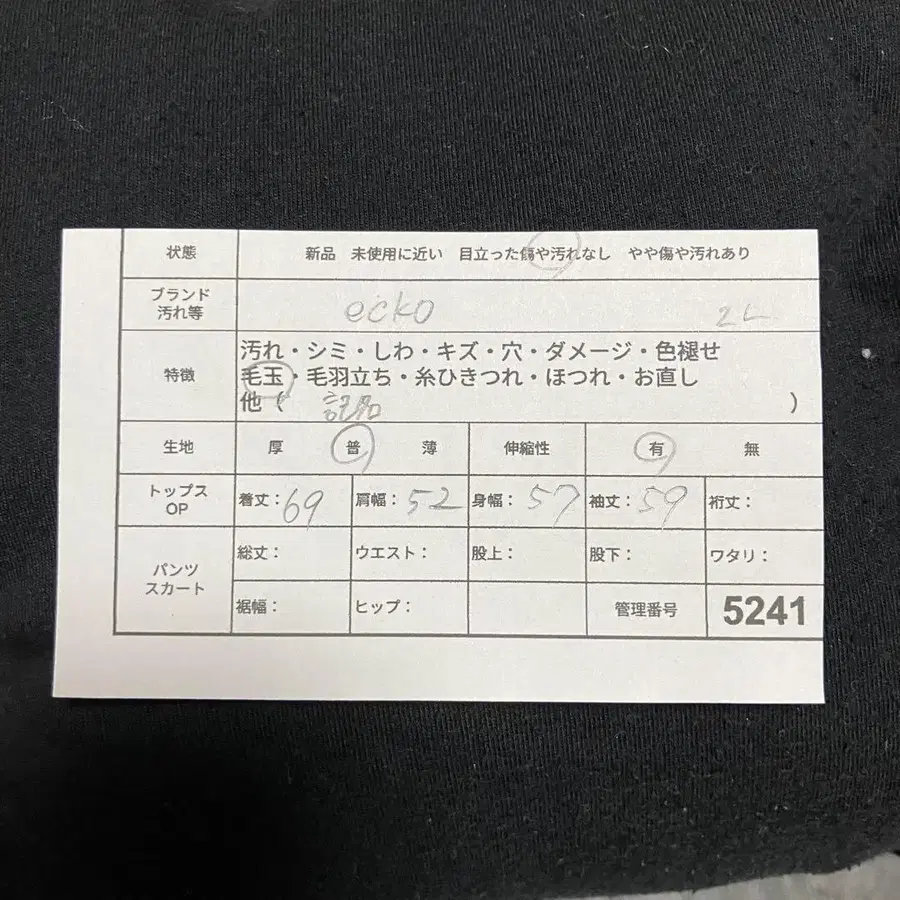 状態 新品 未使用に近い 目立った傷や汚れなし やや傷や汚れあり
ブランド
汚れ等 ecko 2L
汚れ・シミ・しわ・キズ・穴・ダメージ・色褪せ
特徴 毛玉・毛羽立ち・糸ひきつれ・ほつれ・お直し
他( 記名 )
生地 厚 普 薄 伸縮性 有 無
トップス
OP 着丈:69 肩幅:52 身幅:57 袖丈:59 裄丈:
パンツ
スカート
総丈: ウエスト: 股上: 股下: ワタリ:
裾幅: ヒップ: 管理番号 5241